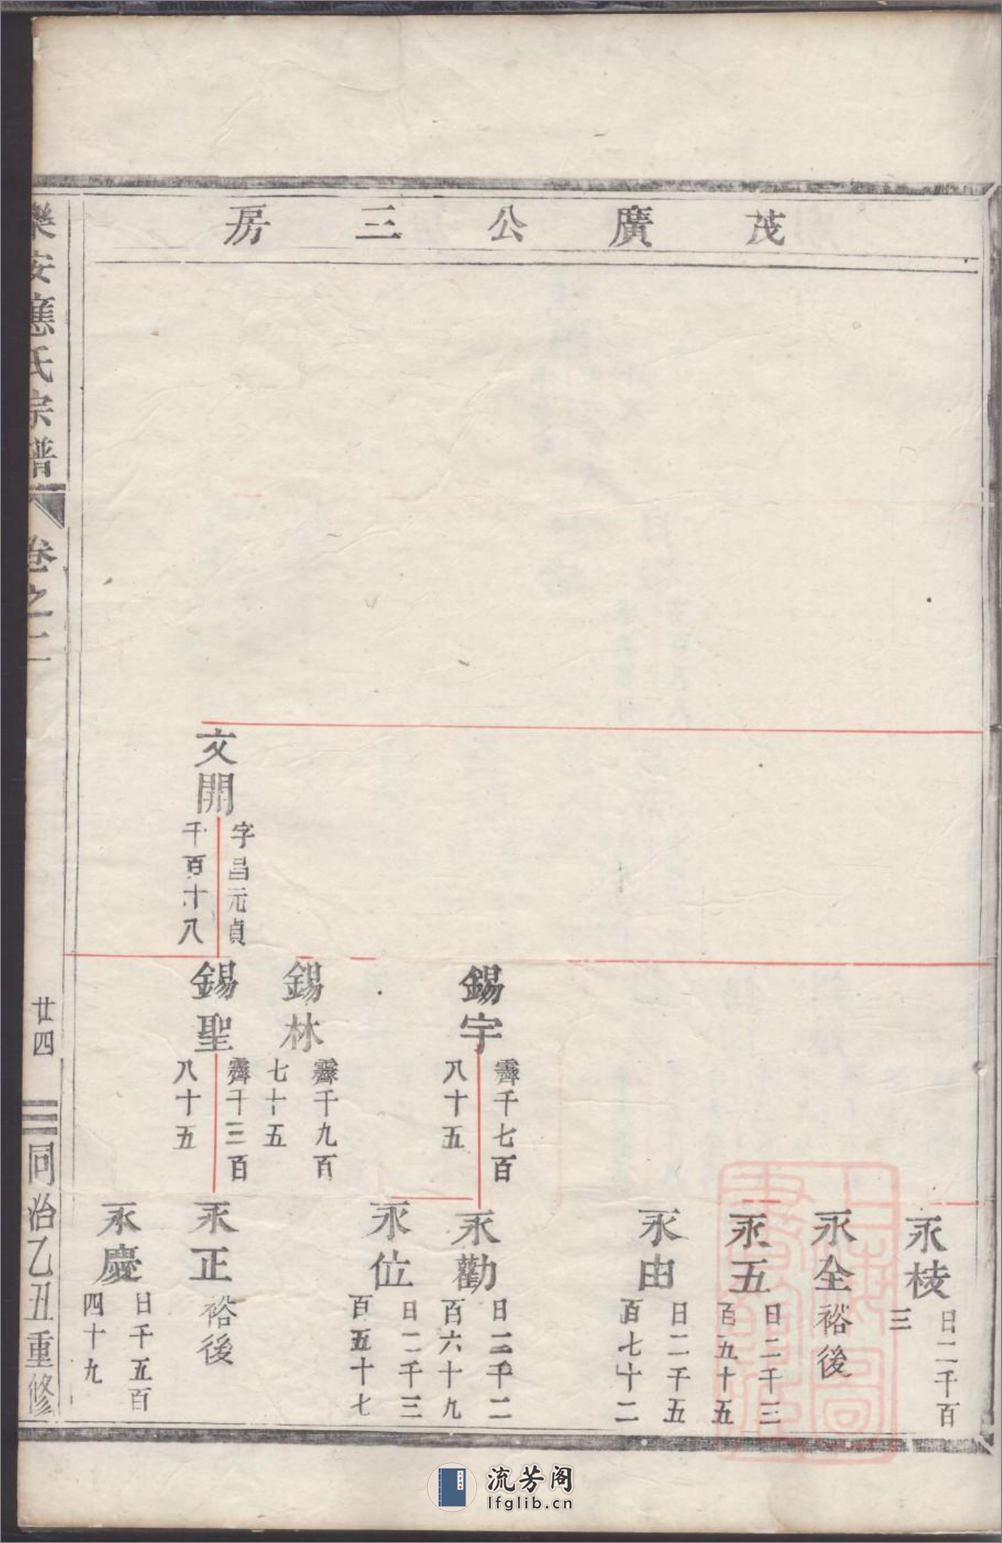 茂廣公三房
文開
字昌元貞
千百十八
錫宇
霽千七百
八十五
錫林
霽千九百
七十五
錫聖
霽千三百
八十五
永棱
日二千百
三
永全
裕後
永五
日二千三
百九十五
永由
日二千五
百七十二
永勸
日二千二
百六十九
永位
日二千三
百五十七
永正
裕後
永慶
日千五百
四十九
樂安應氏宗譜
卷之二
廿四
同治乙丑重修
流芳阁
lfglib.cn